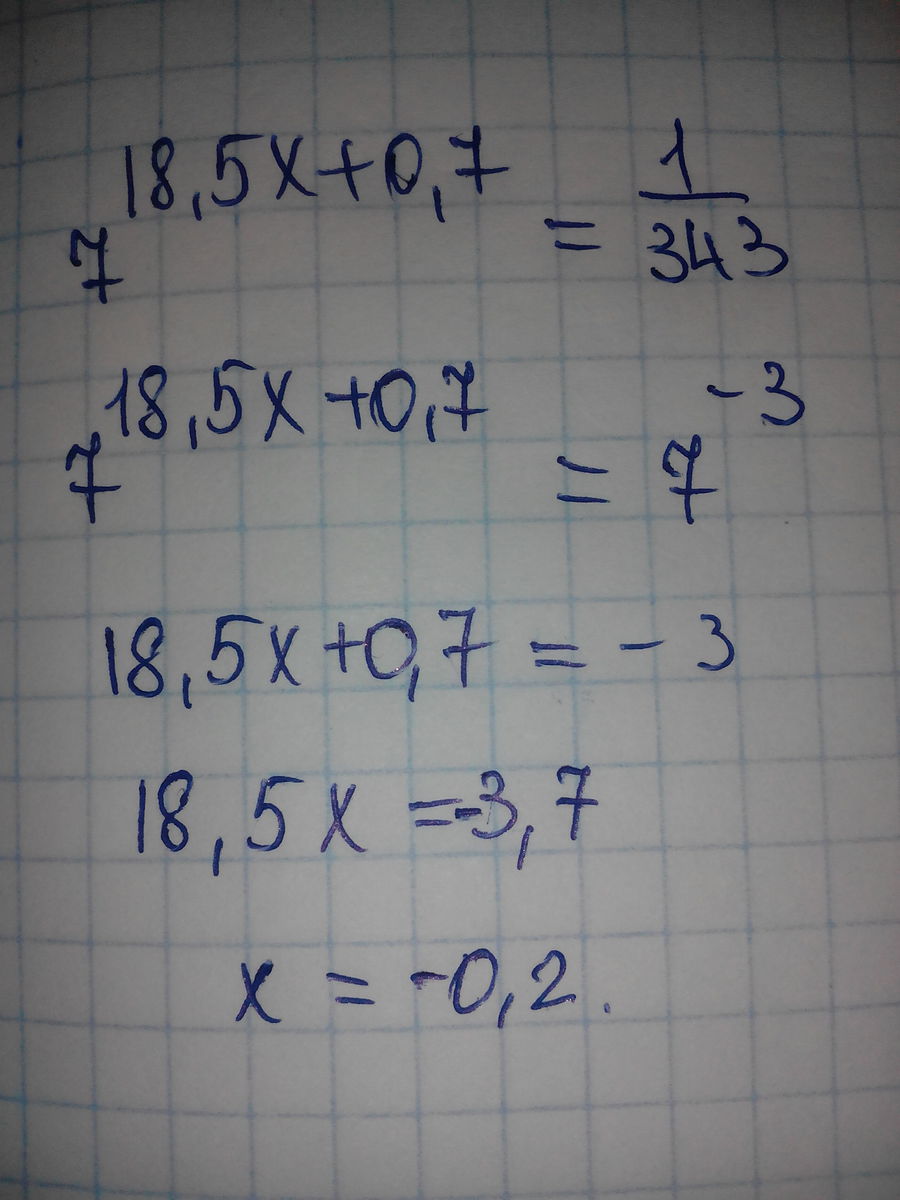 7^{18,5x+0,7} = \frac{1}{343}
7^{18,5x+0,7} = 7^{-3}
18,5x+0,7 = -3
18,5x =-3,7
x = -0,2.